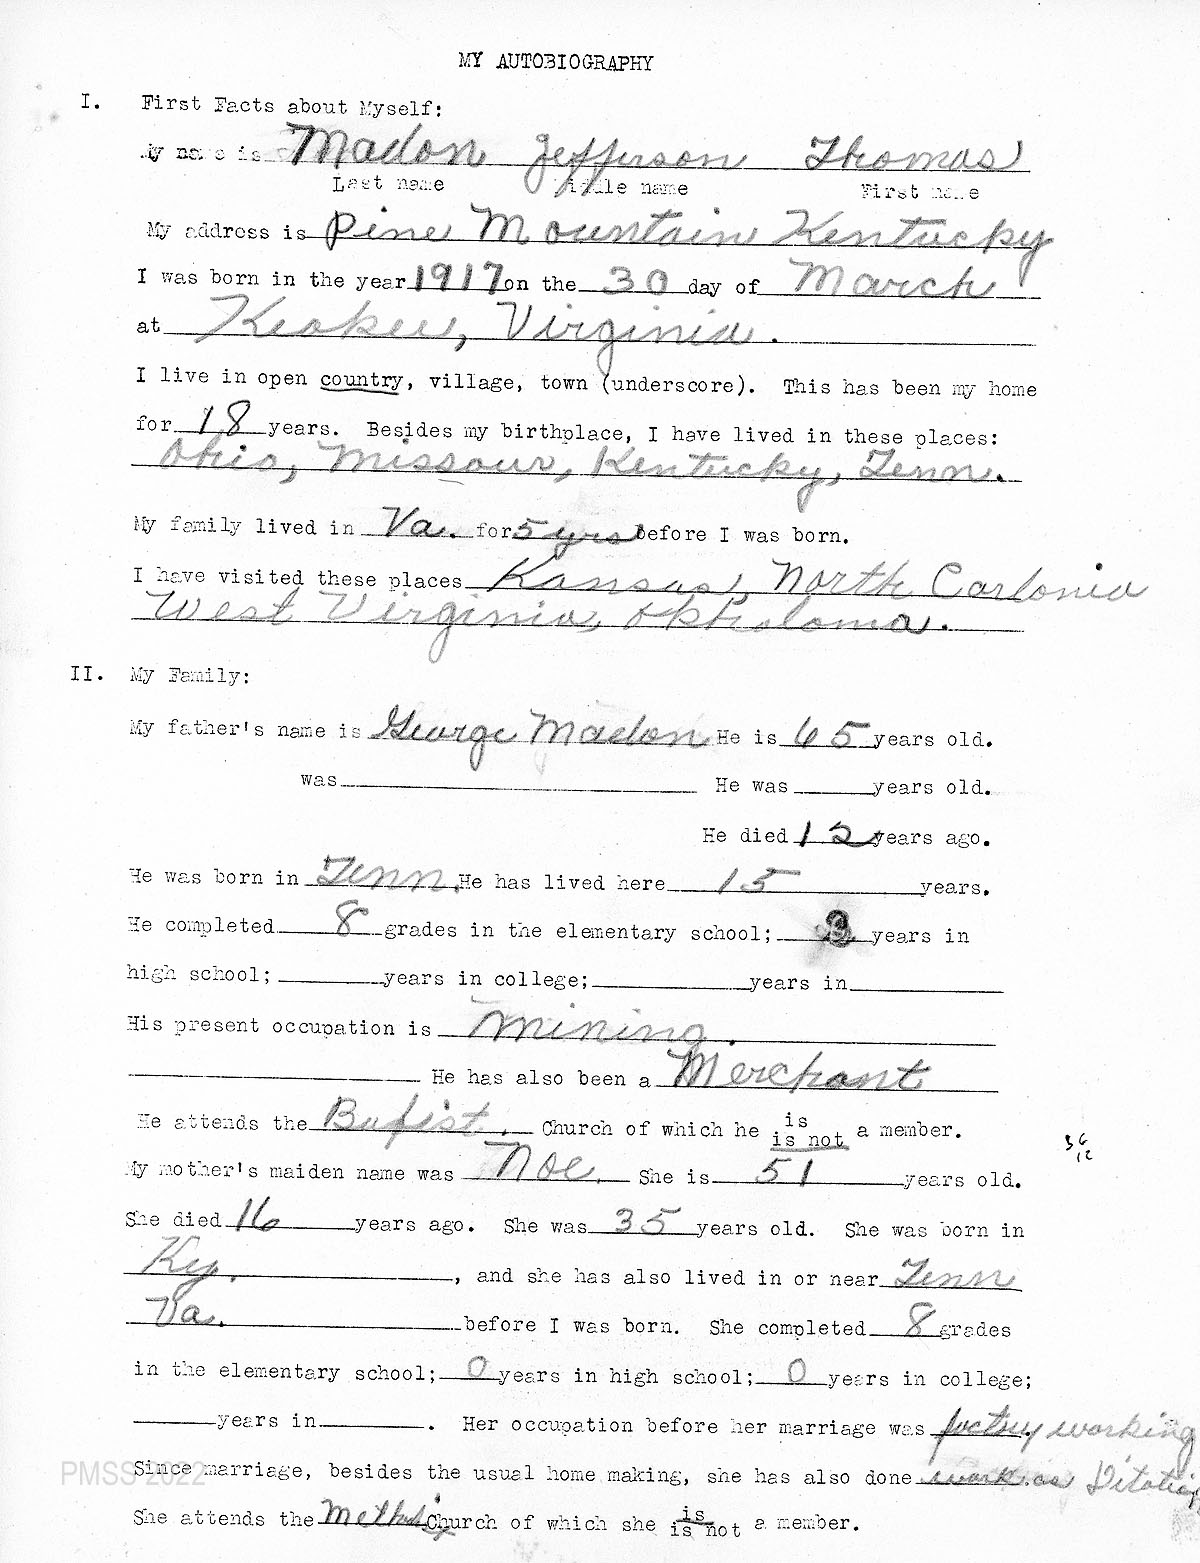 MY AUTOBIOGRAPHY
I. First Facts about Myself:
My name is Madon Jefferson Thomas
Last name Middle name First name
My address is Pine Mountain Kentucky
I was born in the year 1917 on the 30 day of March
at Keokee, Virginia.
I live in open country, village, town (underscore). This has been my home
for 18 years. Besides my birthplace, I have lived in these places:
Ohio, Missour, Kentucky, Tenn.
My family lived in Va. for 5 yrs before I was born.
I have visited these places Kansas, North Carlonia
West Virginia,
II. My Family:
My father's name is George Madon He is 65 years old.
was He was years old.
He died 12 years ago.
He was born in Tenn. He has lived here 15 years.
He completed 8 grades in the elementary school; 3 years in
high school; years in college; years in
His present occupation is mining.
He has also been a Merchant
He attends the Church of which he is
is not a member.
36
12
My mother's maiden name was Noe. She is 51 years old.
She died 16 years ago. She was 35 years old. She was born in
Ky. , and she has also lived in or near Tenn
Va. before I was born. She completed 8 grades
in the elementary school; 0 years in high school; 0 years in college;
years in . Her occupation before her marriage was factory working
Since marriage, besides the usual home making, she has also done work as
She attends the Church of which she is
is not a member.
PMSS 2022